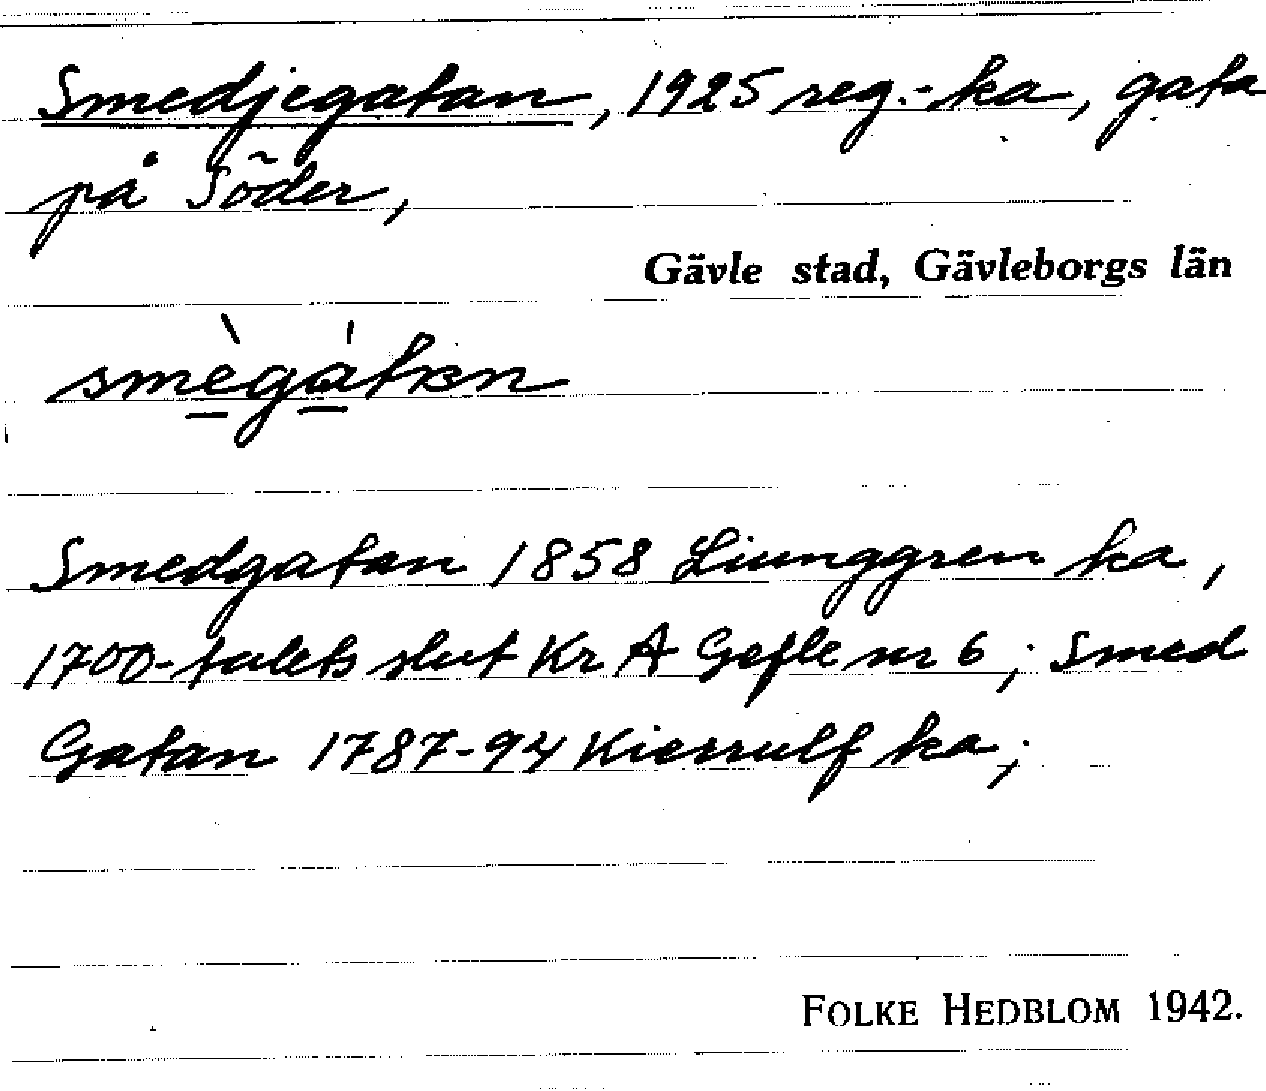 Smedjegatan, 1925 reg.-ka, gata
på Söder,
Gävle stad, Gävleborgs län
smègátn
Smedgatan 1858 Liunggren ka,
1700-talets slut Kr A Gefle nr 6; Smed
Gatan 1787-94 Kierrulf ka;
FOLKE HEDBLOM 1942.